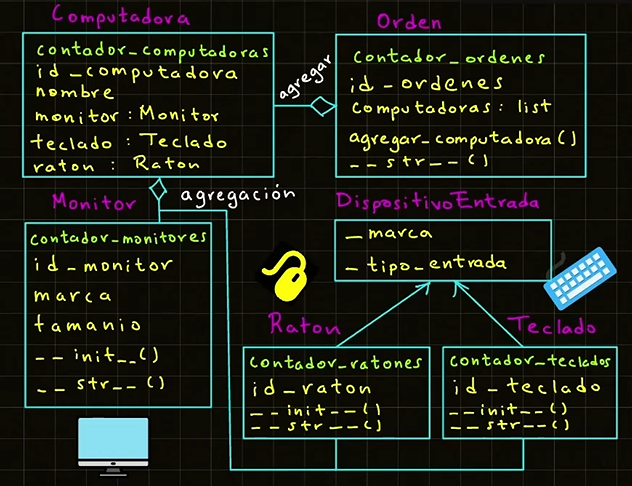 Computadora
contador_computadoras
id_computadora
nombre
monitor : Monitor
teclado : Teclado
raton : Raton
agregar
Orden
contador_ordenes
id_ordenes
computadoras : list
agregar_computadora()
__str__()
agregación
Monitor
contador_monitores
id_monitor
marca
tamanio
__init__()
__str__()
DispositivoEntrada
_marca
_tipo_entrada
Raton
contador_ratones
id_raton
__init__()
__str__()
Teclado
contador_teclados
id_teclado
__init__()
__str__()